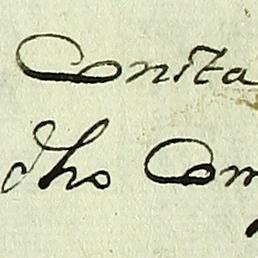 Consta
dho Com